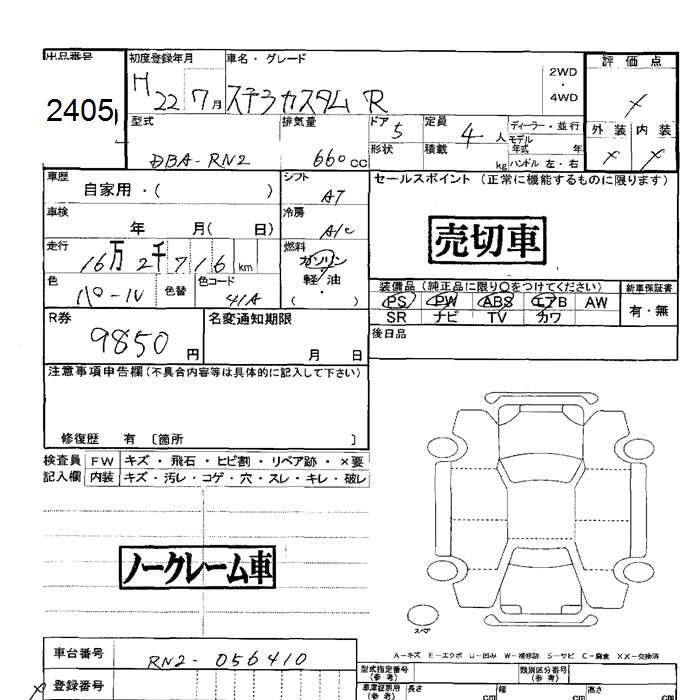 出品番号 初度登録年月 車名・グレード 評価点
2405 H22 7月 ステラカスタム R 2WD・4WD
型式 排気量 ドア 5 定員 4人 ディーラー・並行 外装 内装
モデル年式 年
DBA-RN2 660cc 形状 積載 kg ハンドル 左・右
車歴 シフト セールスポイント (正常に機能するものに限ります)
自家用・( ) AT
車検 冷房 売切車
年 月( 日) A/C
走行 燃料
16万2千716km ガソリン
軽・油
・( )
色 色替 色コード 装備品 (純正品に限り○をつけてください) 新車保証書
パール 41A PS PW ABS エアB AW 有・無
R券 名変通知期限 SR ナビ TV カワ
9850円 月 日 後日品
注意事項申告欄 (不具合内容等は具体的に記入して下さい)
修復歴 有 〔箇所 〕
検査員 FW キズ・飛石・ヒビ割・リペア跡・×要
記入欄 内装 キズ・汚レ・コゲ・穴・スレ・キレ・破レ
ノークレーム車
スペア
A-キズ E-エクボ U-凹み W-補修跡 S-サビ C-腐食 XX-交換済
車台番号 RN2-056410
型式指定番号(参考) 類別区分番号(参考)
登録番号
車庫証明用(参考) 長さ cm 幅 cm 高さ cm